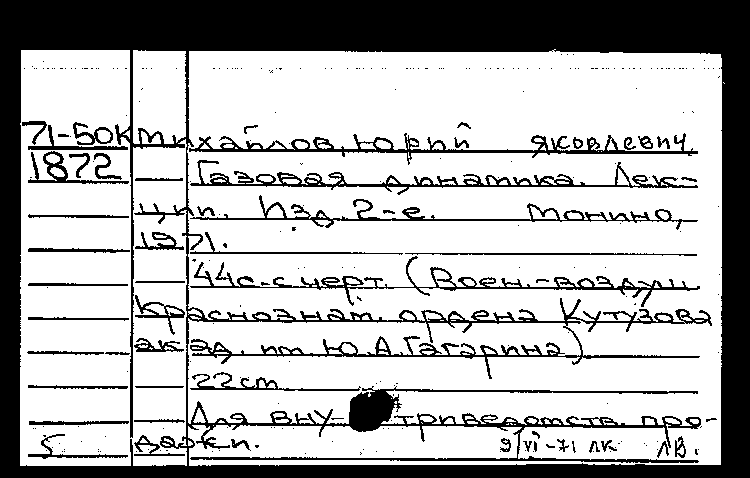 71-50К Михайлов, Юрий Яковлевич.
1872 Газовая динамика. Лек-
ции. Изд. 2-е. Монино,
1971.
44с. с черт. (Воен.-воздуш
Краснознам. ордена Кутузова
акад. им. Ю.А.Гагарина)
22 см
Для вну триведомств. про-
5 дажи. 9/VI-71 ЛК ЛВ.